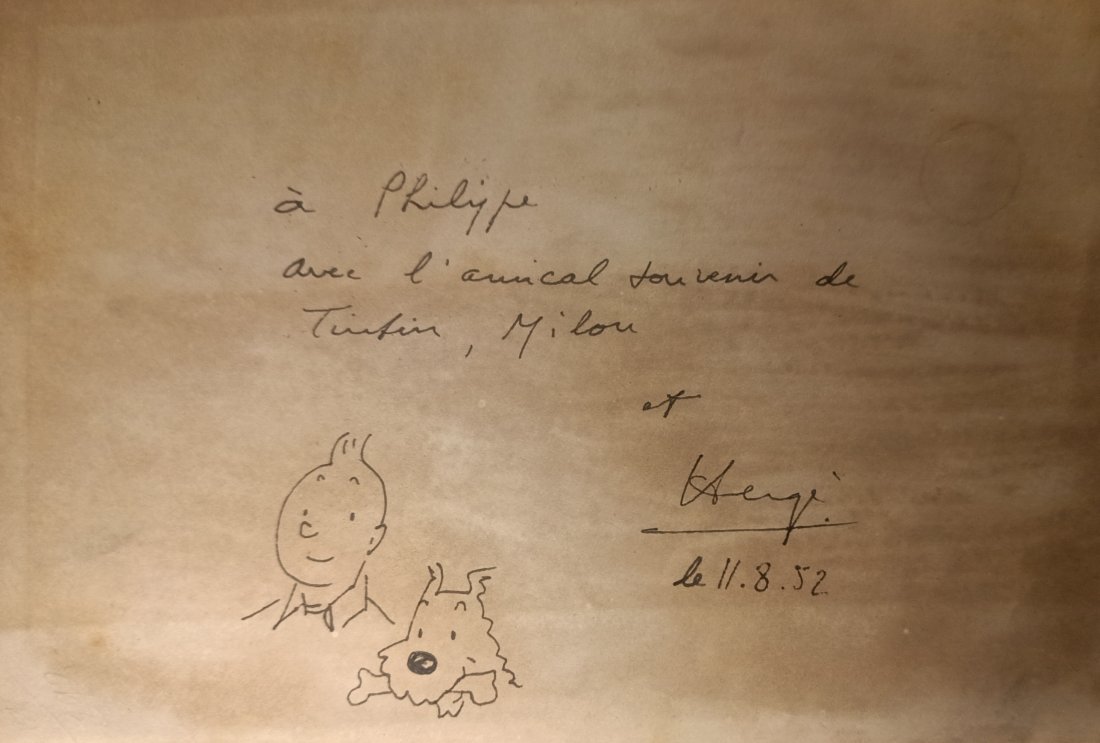 à Philippe
avec l'amical souvenir de
Tintin, Milou
et
Hergé.
le 11.8.52